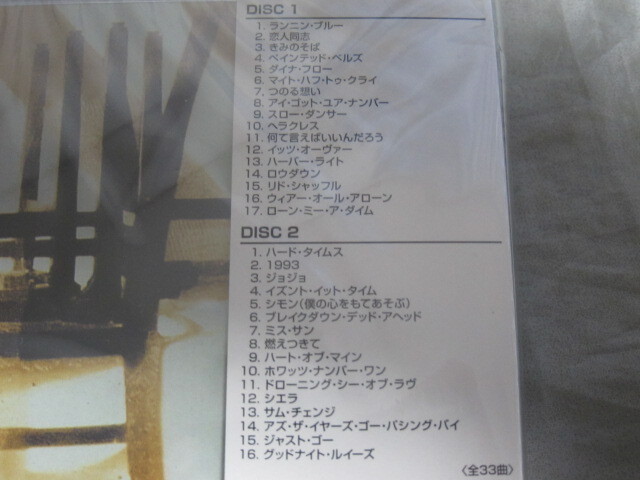 DISC 1
1. ランニン・ブルー
2. 恋人同志
3. きみのそば
4. ペインテッド・ベルズ
5. ダイナ・フロー
6. マイト・ハフ・トゥ・クライ
7. つのる想い
8. アイ・ゴット・ユア・ナンバー
9. スロー・ダンサー
10. ヘラクレス
11. 何て言えばいいんだろう
12. イッツ・オーヴァー
13. ハーバー・ライト
14. ロウダウン
15. リド・シャッフル
16. ウィアー・オール・アローン
17. ローン・ミー・ア・ダイム
DISC 2
1. ハード・タイムス
2. 1993
3. ジョジョ
4. イズント・イット・タイム
5. シモン(僕の心をもてあそぶ)
6. ブレイクダウン・デッド・アヘッド
7. ミス・サン
8. 燃えつきて
9. ハート・オブ・マイン
10. ホワッツ・ナンバー・ワン
11. ドローニング・シー・オブ・ラヴ
12. シエラ
13. サム・チェンジ
14. アズ・ザ・イヤーズ・ゴー・パシング・バイ
15. ジャスト・ゴー
16. グッドナイト・ルイーズ
〈全33曲〉